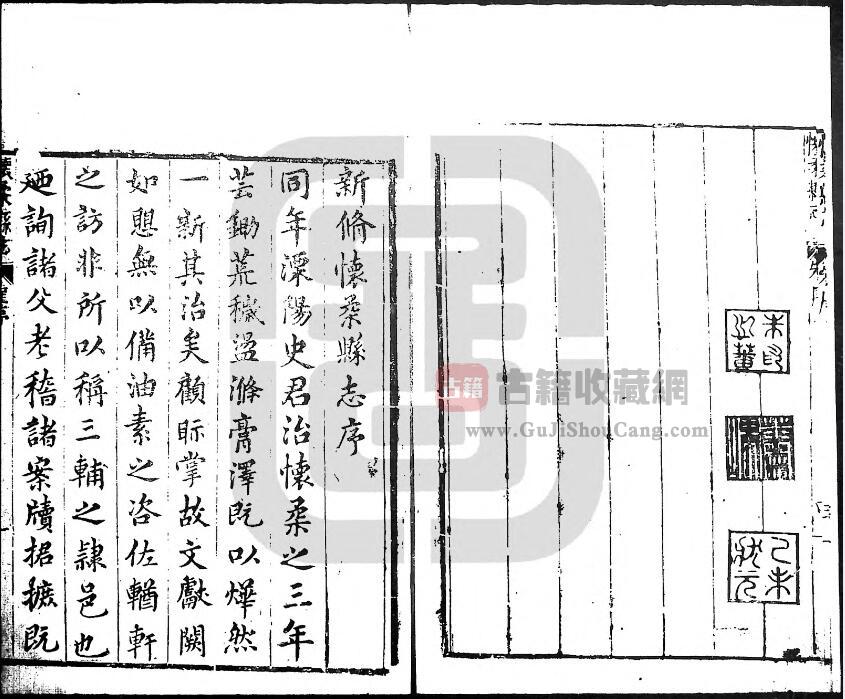 新脩懷柔縣志序
同年溧陽史君治懷柔之三年
芸鋤荒穢盪滌膏澤既以燁然
一新其治矣顧眎掌故文獻闕
如思無以備油素之咨佐輶軒
之訪非所以稱三輔之隷邑也
廼詢諸父老稽諸案牘捃摭既
古籍
古籍收藏網
www.GuJiShouCang.com
己未
狀元